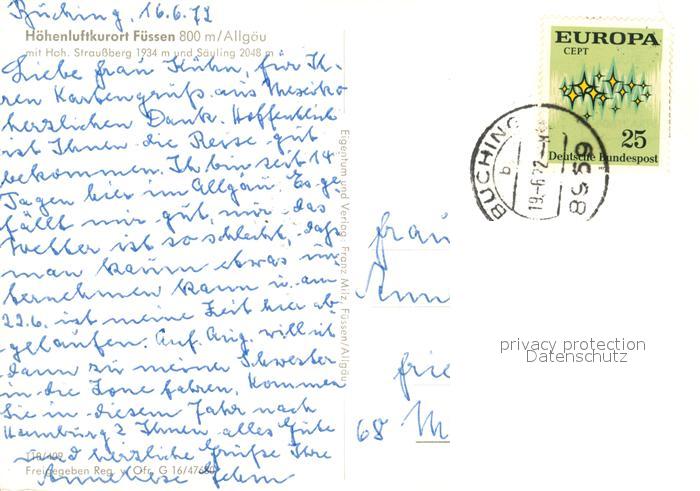 Büching, 16.6.72
Höhenluftkurort Füssen 800 m/Allgöu
mit Hoh. Straußberg 1934 m und Säuling 2048 m
Liebe Frau Kühn, für Ih-
ren Kartengruß aus Mexiko
herzlichen Dank. Hoffentlich
ist Ihnen die Reise gut
bekommen. Ich bin seit 14
Tagen hier im Allgäu. Es ge-
fällt mir gut, nur das
Wetter ist so schlecht, daß
man kaum etwas un-
ternehmen kann u. am
22.6. ist meine Zeit hier ab-
gelaufen. Auf. Aug. will ich
dann zu meiner Schwester
in die Zone fahren. Kommen
Sie in diesem Jahr nach
Hamburg? Ihnen alles Gute
und herzliche Grüße Ihre
Anneliese
Freigegeben Reg. v. Ofr. G 16/47
Eigentum und Verlag Franz Milz, Füssen/Allgöu
EUROPA
CEPT
25
Deutsche Bundespost
BUCHING
b
19.-6.72
8959
Frau
Ann
frie
68 M
privacy protection
Datenschutz